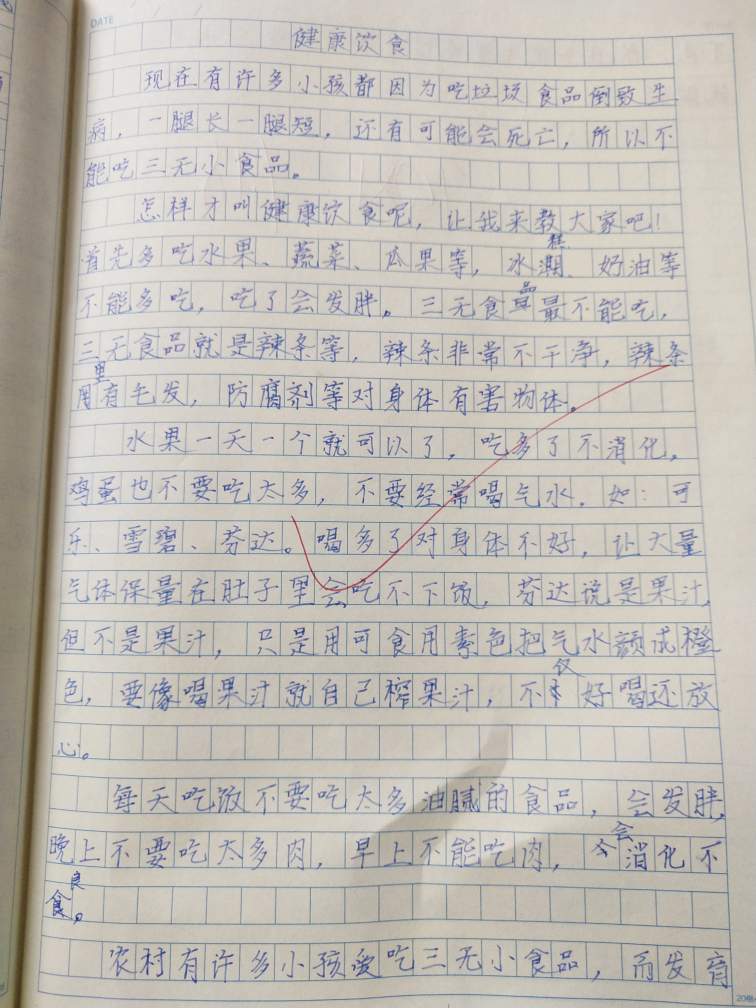 DATE
健康饮食
现在有许多小孩都因为吃垃圾食品倒致生
病，一腿长一腿短，还有可能会死亡，所以不
能吃三无小食品。
怎样才叫健康饮食呢，让我来教大家吧！
首先多吃水果、蔬菜、瓜果等，冰淇、奶油等
不能多吃，吃了会发胖。三无食品最不能吃，
三无食品就是辣条等，辣条非常不干净，辣条
里有毛发，防腐剂等对身体有害物体。
水果一天一个就可以了，吃多了不消化。
鸡蛋也不要吃太多，不要经常喝气水．如：可
乐、雪碧、芬达。喝多了对身体不好，让大量
气体保量在肚子里会吃不下饭，芬达说是果汁，
但不是果汁，只是用可食用素色把气水颜成橙
色，要像喝果汁就自己榨果汁，不仅好喝还放
心。
每天吃饭不要吃太多油腻的食品，会发胖，
晚上不要吃太多肉，早上不能吃肉，会消化不
良。
农村有许多小孩爱吃三无小食品，而发育